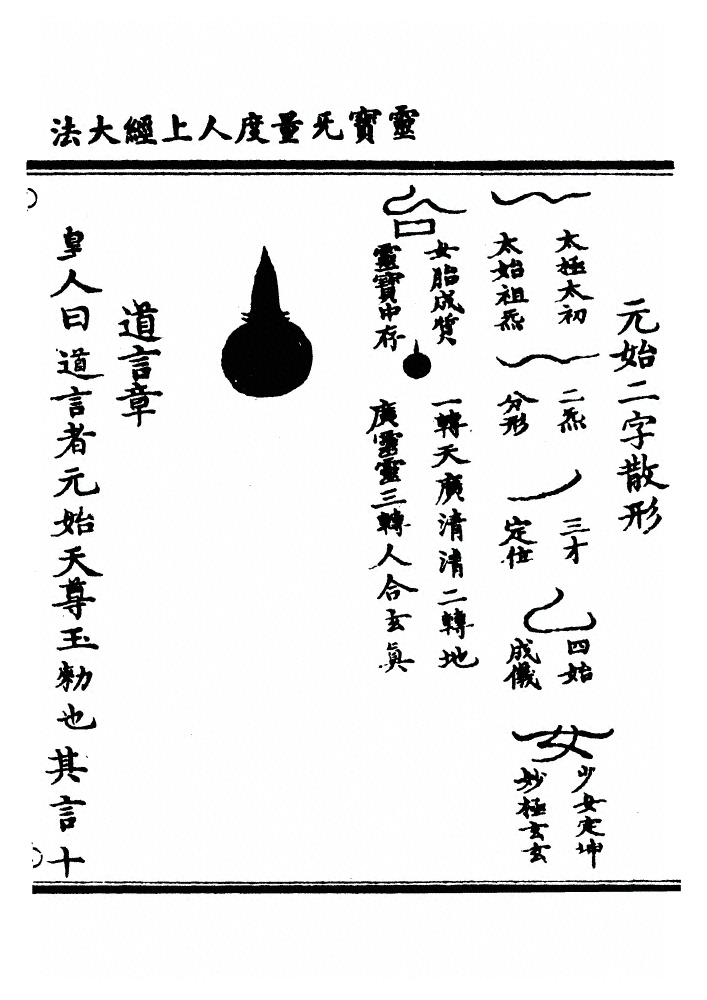 靈寶无量度人上經大法
元始二字散形
太極太初
太始祖炁
二炁
分形
三才
定位
乙
四始
成儀
女
少女定坤
妙極玄玄
台
女胎成質
靈寶中存
一轉天廣清清二轉地
廣靈靈三轉人合玄眞
道言章
皇人曰道言者元始天尊玉勑也其言十